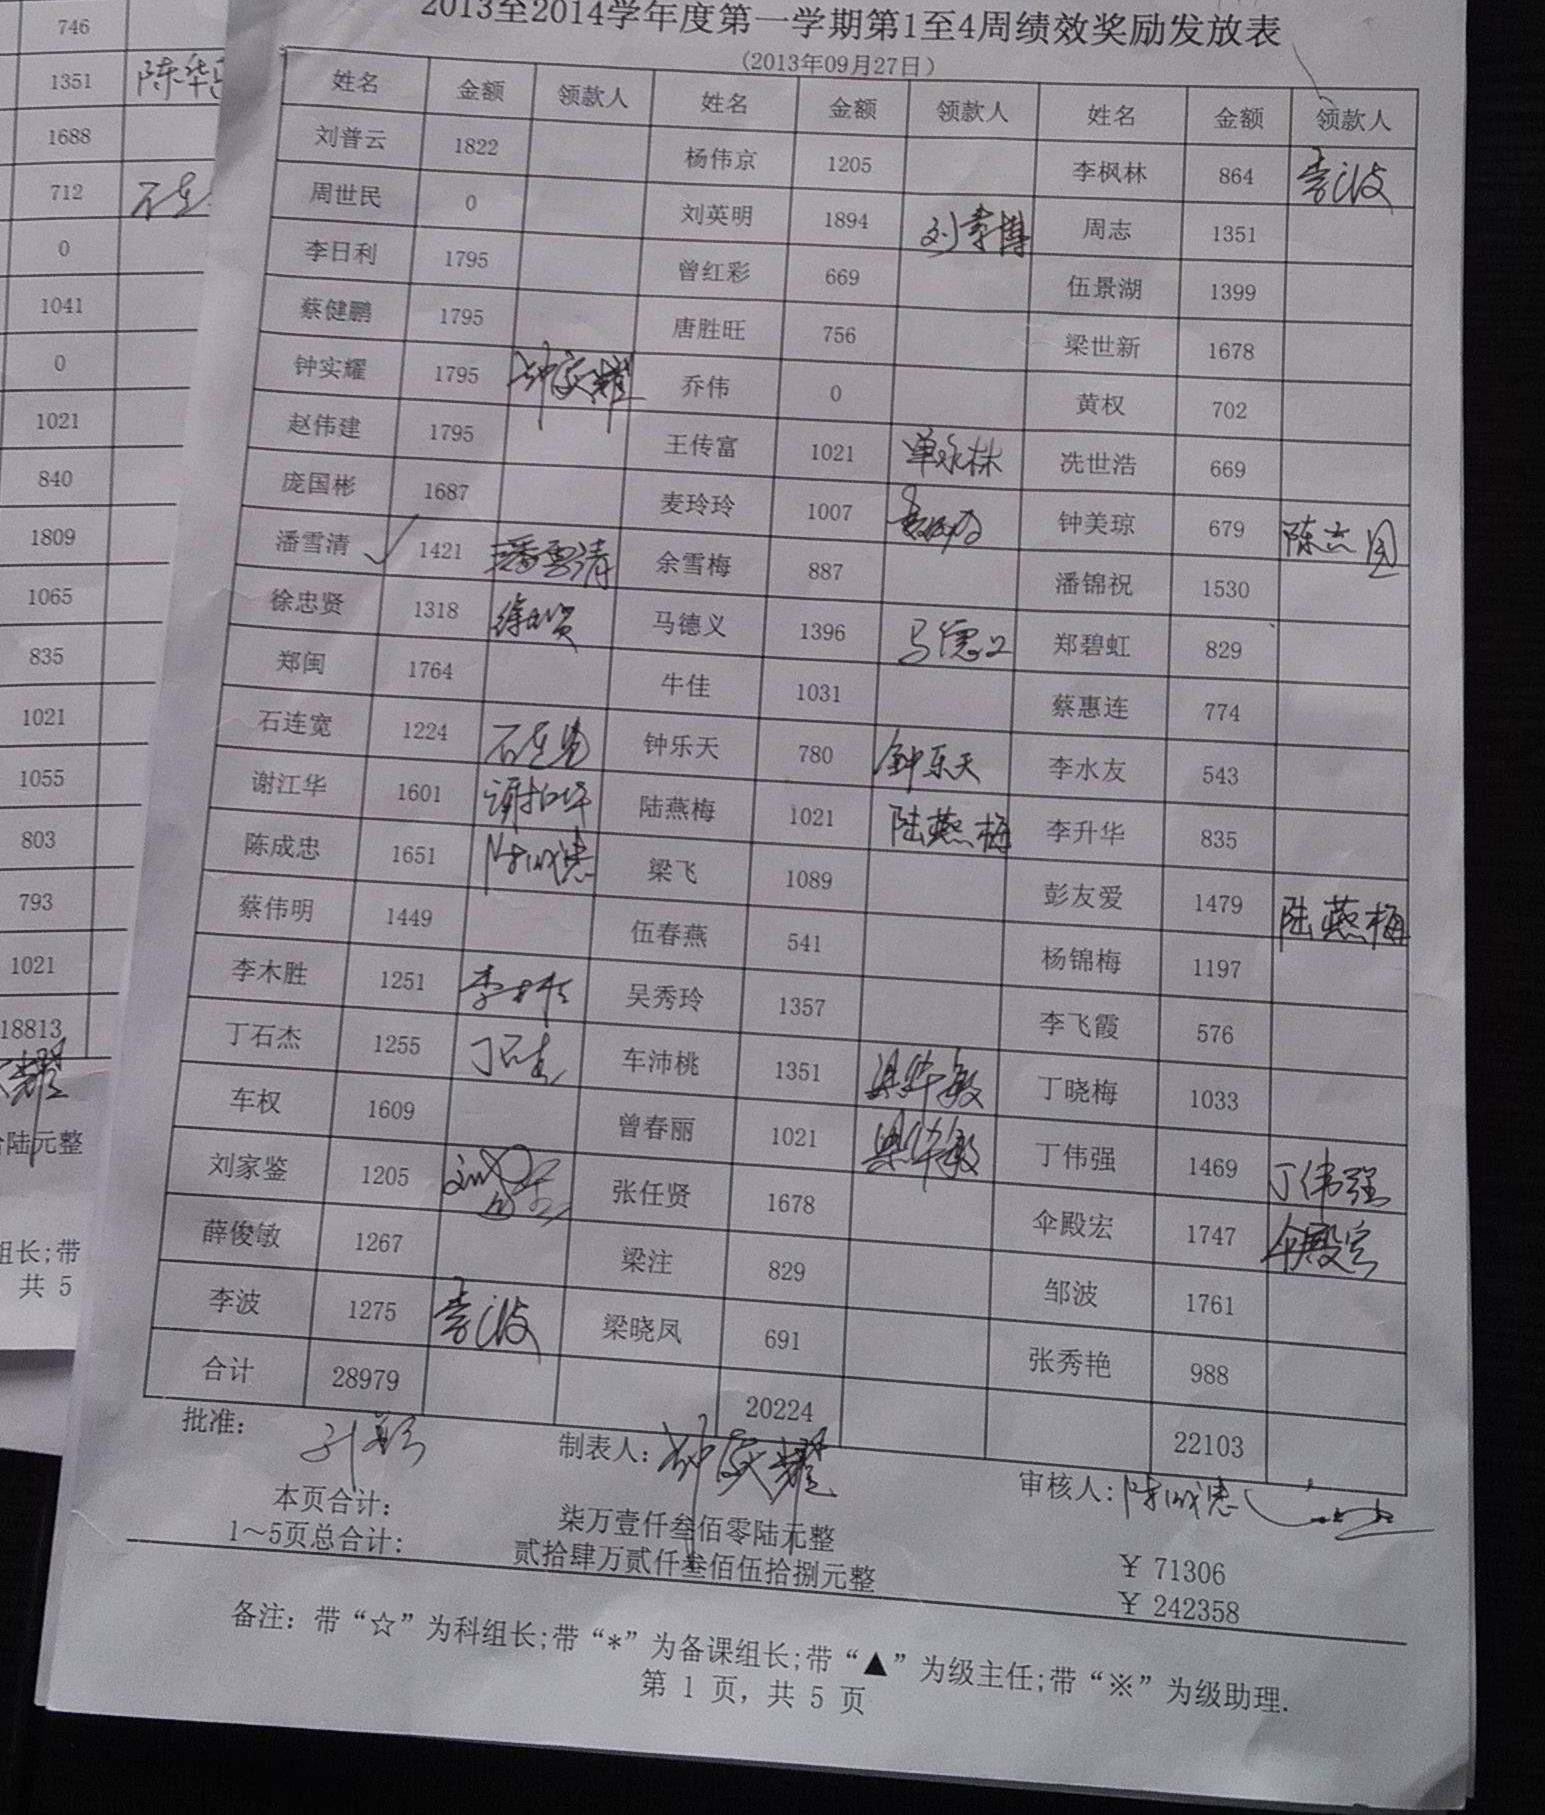 746
1351 陈华
1688
712 石连
0
1041
0
1021
840
1809
1065
835
1021
1055
803
793
1021
18813
耀
陆元整
组长;带
共 5
2013至2014学年度第一学期第1至4周绩效奖励发放表
(2013年09月27日)
姓名 金额 领款人 姓名 金额 领款人 姓名 金额 领款人
刘普云 1822 杨伟京 1205 李枫林 864 李波
周世民 0 刘英明 1894 刘孝博 周志 1351
李日利 1795 曾红彩 669 伍景湖 1399
蔡健鹏 1795 唐胜旺 756 梁世新 1678
钟实耀 1795 钟实耀 乔伟 0 黄权 702
赵伟建 1795 王传富 1021 单永林 冼世浩 669
庞国彬 1687 麦玲玲 1007 钟美琼 679 陈志国
潘雪清 1421 潘雪清 余雪梅 887 潘锦祝 1530
徐忠贤 1318 徐忠贤 马德义 1396 马德义 郑碧虹 829
郑闽 1764 牛佳 1031 蔡惠连 774
石连宽 1224 石连宽 钟乐天 780 钟乐天 李水友 543
谢江华 1601 陆燕梅 1021 陆燕梅 李升华 835
陈成忠 1651 陈成忠 梁飞 1089 彭友爱 1479 陆燕梅
蔡伟明 1449 伍春燕 541 杨锦梅 1197
李木胜 1251 李木胜 吴秀玲 1357 李飞霞 576
丁石杰 1255 丁石杰 车沛桃 1351 梁华敏 丁晓梅 1033
车权 1609 曾春丽 1021 梁华敏 丁伟强 1469 丁伟强
刘家鉴 1205 张任贤 1678 伞殿宏 1747 伞殿宏
薛俊敏 1267 梁注 829 邹波 1761
李波 1275 李波 梁晓凤 691 张秀艳 988
合计 28979 20224 22103
批准: 制表人: 钟实耀 审核人: 陈成忠
本页合计: 柒万壹仟叁佰零陆元整 ¥ 71306
1～5页总合计: 贰拾肆万贰仟叁佰伍拾捌元整 ¥ 242358
备注: 带“☆”为科组长;带“*”为备课组长;带“▲”为级主任;带“※”为级助理.
第 1 页, 共 5 页